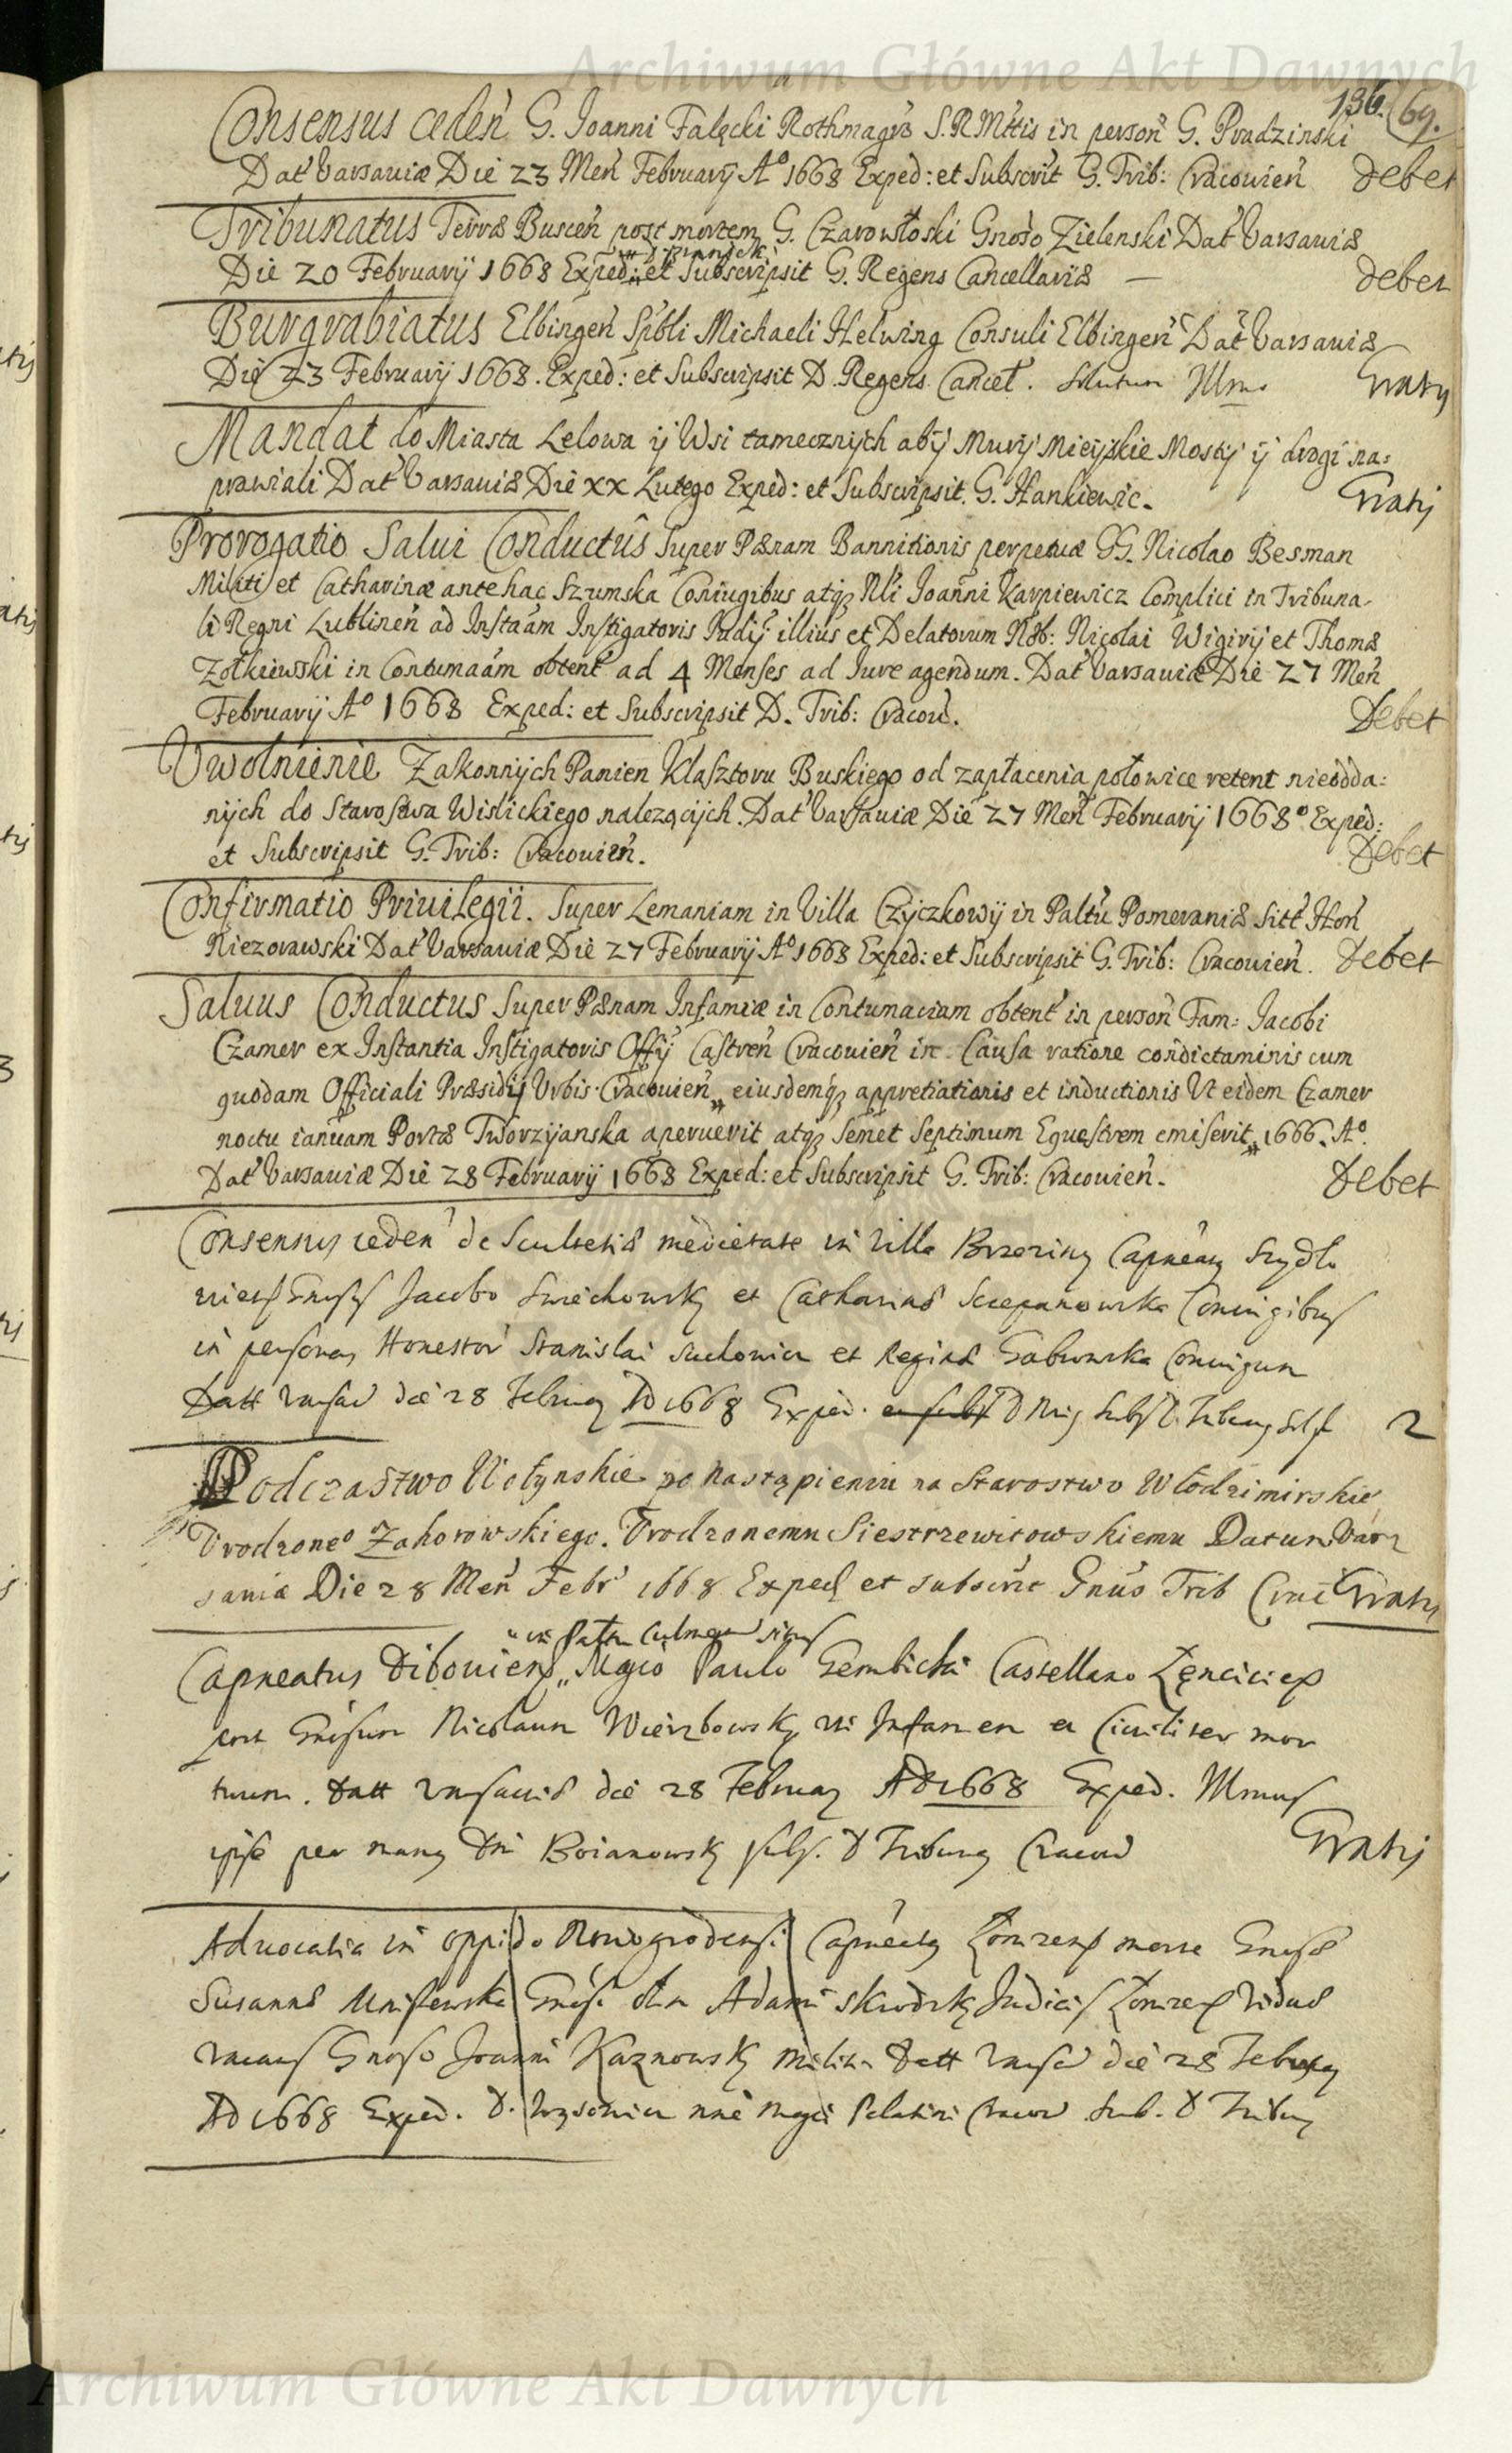 Archiwum Główne Akt Dawnych
136. 69.
Consensus cedeń G. Joanni Falęcki Rothmagrō S.R.Mttis in persoń G. Prudzinski
Dat Varsauiæ Die 23 Meń February A° 1668 Exped: et Subscrit G. Trib: Cracouień Debet
Tribunatus Terræ Busceń post mortem G. Czarowłoski Gnoso Zielenski Dat Varsauiæ
Die 20 February 1668 Exped: et Subscripsit G. Regens Cancellariæ — debet
Burgrabiatus Elbingeń Spbli Michaeli Helwing Consuli Elbingeń Dat Varsauiæ
Die 23 February 1668. Exped: et Subscripsit D. Regens Cancel. Gratis
Mandat do Miasta Lelowa ÿ Wsi tamecznÿch abÿ Murÿ Mieÿskie Mostÿ ÿ drogi na:
prawiali Dat Varsauiæ Die XX Lutego Exped: et Subscripsit. G. Hankiewic. Gratis
Prorogatio Salui Conductûs Super Pænam Bannitionis perpetuæ GG. Nicolao Besman
Militi et Catharinæ antehac Szumska Coniugibus atq3 Nli Joanni Karpiewicz Complici in Tribuna-
li Regni Lublineń ad Instaám Instigatoris Iudÿ: illius et Delatorum Nob: Nicolai Wigirÿ et Thomæ
Zołkiewski in Contumaám obtent ad 4 Menses ad Iure agendum. Dat Varsauiæ Die 27 Meń
Februarÿ A° 1668 Exped: et Subscripsit D. Trib: Cracou. Debet
Vwolnienie Zakonnÿch Panien Klasztoru Buskiego od zapłacenia połowice retent nieodda:
nÿch do Starostwa Wislickiego nalezącÿch. Dat Varsauiæ Die 27 Meń Februarÿ 1668° Exped:
et Subscripsit G. Trib: Cracouień. Debet
Confirmatio Priuilegii. Super Lemaniam in Villa Czÿczkowÿ in Paltu Pomeraniæ Sitt Hoń
Niezorawski Dat Varsauiæ Die 27 Februarÿ A° 1668 Exped: et Subscripsit G. Trib: Cracouień. Debet
Saluus Conductus Super Pænam Infamiæ in Contumaciam obtent in persoń Fam: Jacobi
Czamer ex Instantia Instigatoris Offÿ Castreń Cracouień in Causa ratione condictaminis cum
quodam Officiali Præsidÿ Vrbis Cracouień, eiusdemq3 appretiationis et inductionis Vt eidem Czamer
noctu ianuam Portæ Tworzÿanska aperuerit atq3 Semet Septimum Equestrem emiserit, 1666. A°.
Dat Varsauiæ Die 28 Februarÿ 1668 Exped: et Subscripsit G. Trib: Cracouień. Debet
Consensus cedeń de Scultetiæ medietate in Villa Brzeziny Capneatus Szydło
Jacobo Swiechowsky et Catharinæ Sczepanowska Coniugibus
in personas Honestor Stanislai et Reginæ Gaburska Coniugum
Datt Varsav die 28 February AD 1668 Exped. 2
Podczastwo Wołynskie po nastąpieniu na Starostwo Włodzimirskie
Vrodzone° Zahorowskiego. Vrodzonemu Siestrzewitowskiemu Datum Var
sauiæ Die 28 Meń Febr 1668 Exped et subscrit Gnus Trib Crac Gratis
in Paltu Culmen situs
Capneatus Diboviens, Mgco Paulo Gembicki Castellano Lęncicien
post Gnosum Nicolaum Wierzbowsky uti Infamem et Ciuiliter mor
tuum. Datt Varsauiæ die 28 February AD 1668 Exped. Illmus
ipse per manus Dni Boianowsky subs. D Tribunus Cracov Gratis
Aduocatia in oppido Nowogrodensi Capneatus Łomzens morte Gnosæ
Susannæ Gnosi olim Adami Skrodzky Judicis Łomzens Viduæ
vacans Gnoso Joanni Kaznowsky militi Datt Varsav die 28 February
AD 1668 Exped. D. Mgci Palatini Cracov Sub. D Tribun
Archiwum Główne Akt Dawnych